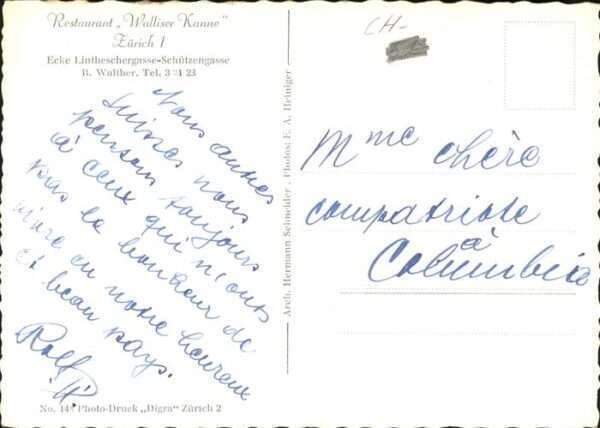 Restaurant „Walliser Kanne"
Zürich 1
Ecke Lintheschergasse-Schützengasse
B. Walther, Tel. 3 21 23
CH-
Nous autres
suisses nous
pensons toujours
à ceux qui n'ont
pas le bonheur de
vivre en notre heureux
et beau pays.
Rolf
No. 149 Photo-Druck „Digra" Zürich 2
Arch. Hermann Schneider . Photos: E. A. Heiniger
Mme chère
compatriote
à
Columbia